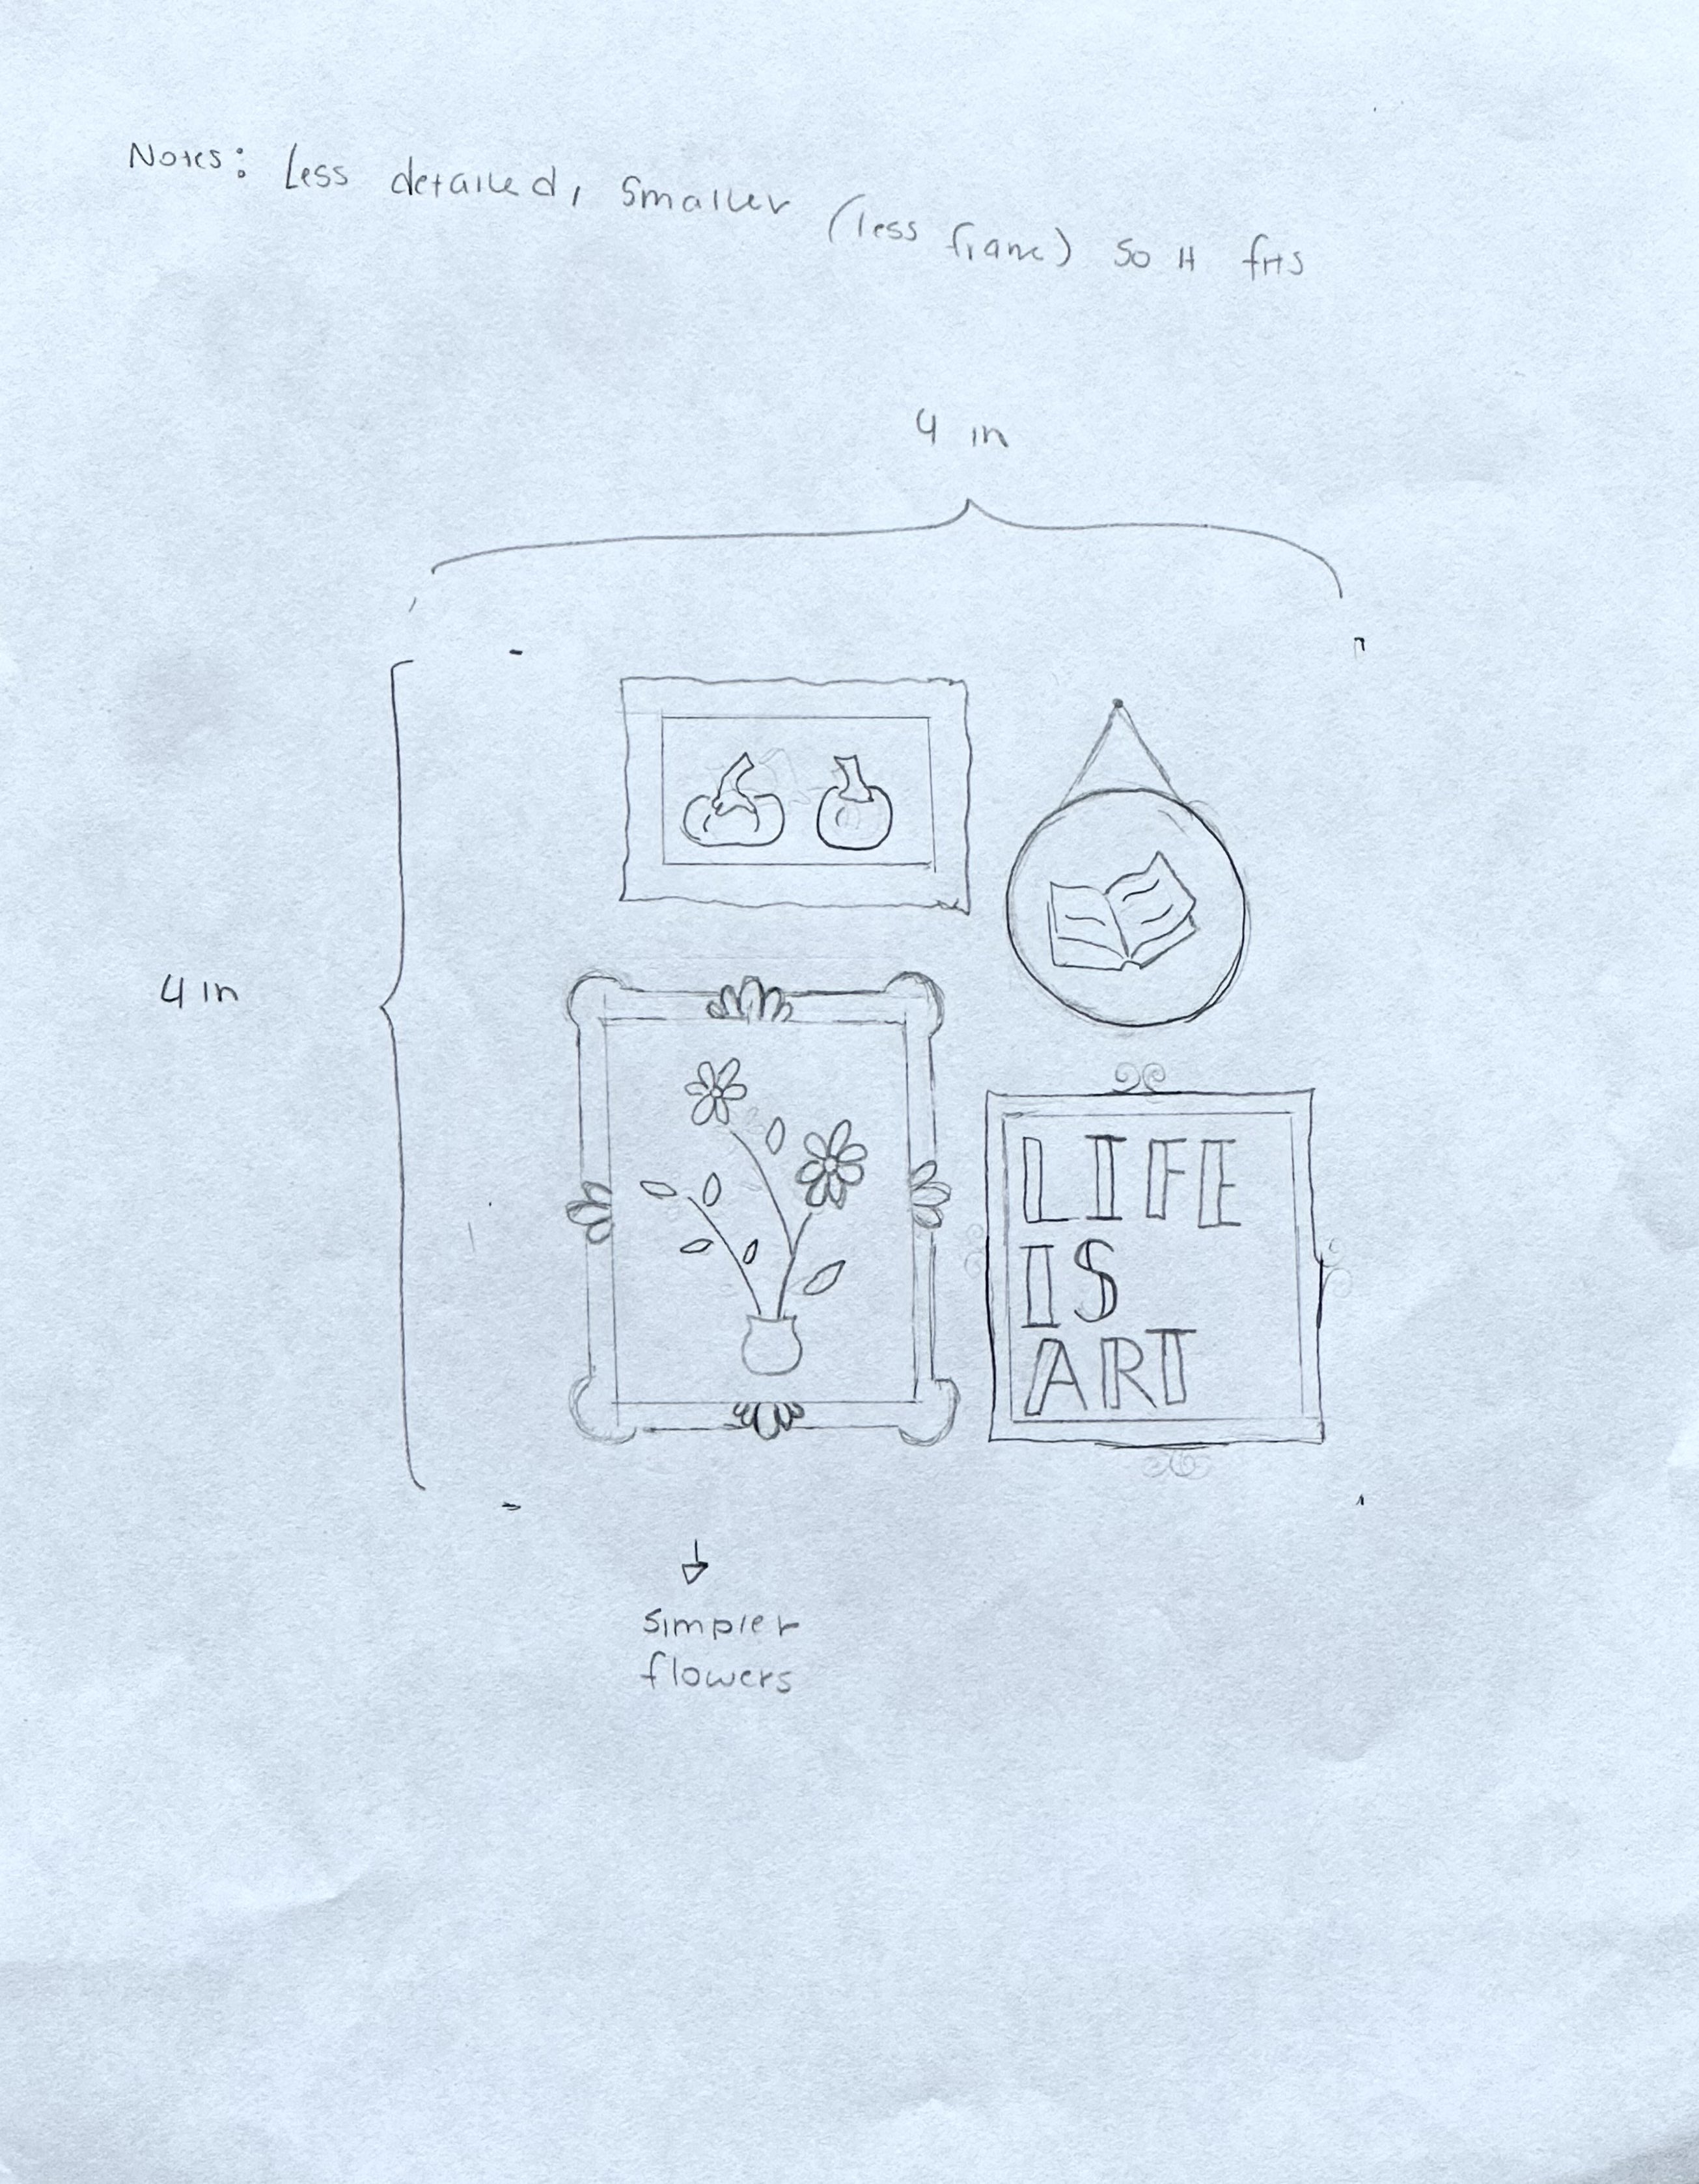 Notes: Less detailed, smaller (less frame) so it fits
4 in
4 in
LIFE
IS
ART
simpler
flowers